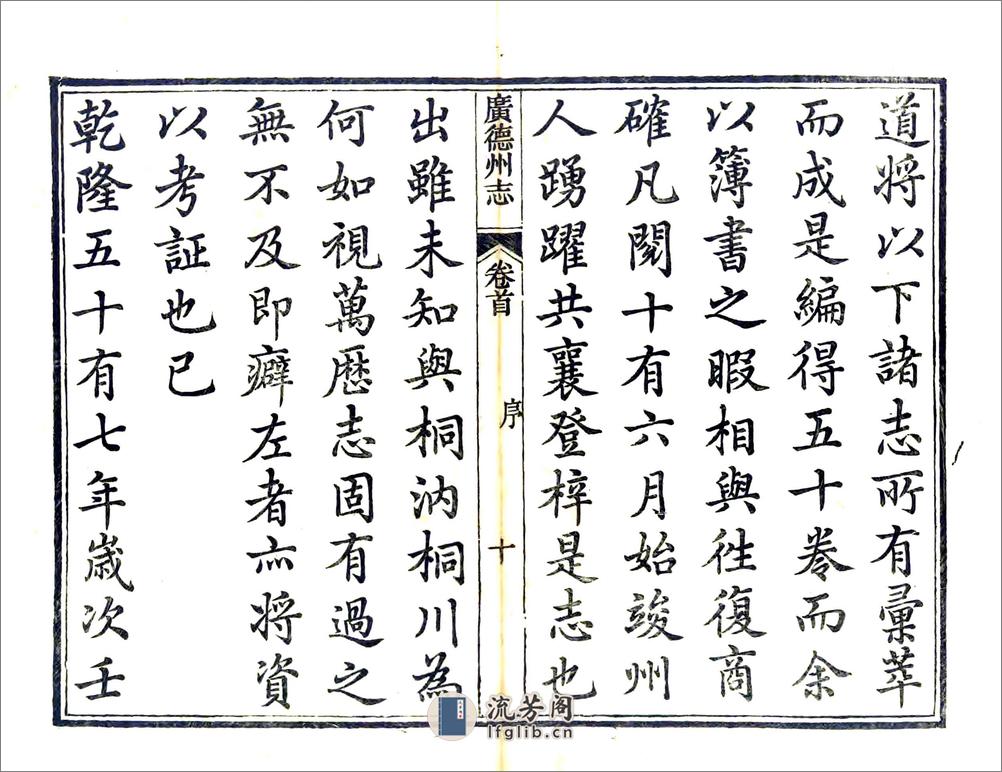 道將以下諸志所有彙萃
而成是編得五十卷而余
以簿書之暇相與徃復商
確凡閱十有六月始竣州
人踴躍共襄登梓是志也
廣德州志 卷首 序 十
出雖未知與桐汭桐川為
何如視萬歴志固有過之
無不及即癖左者亦將資
以考証也已
乾隆五十有七年歲次壬
流芳阁
lfglib.cn